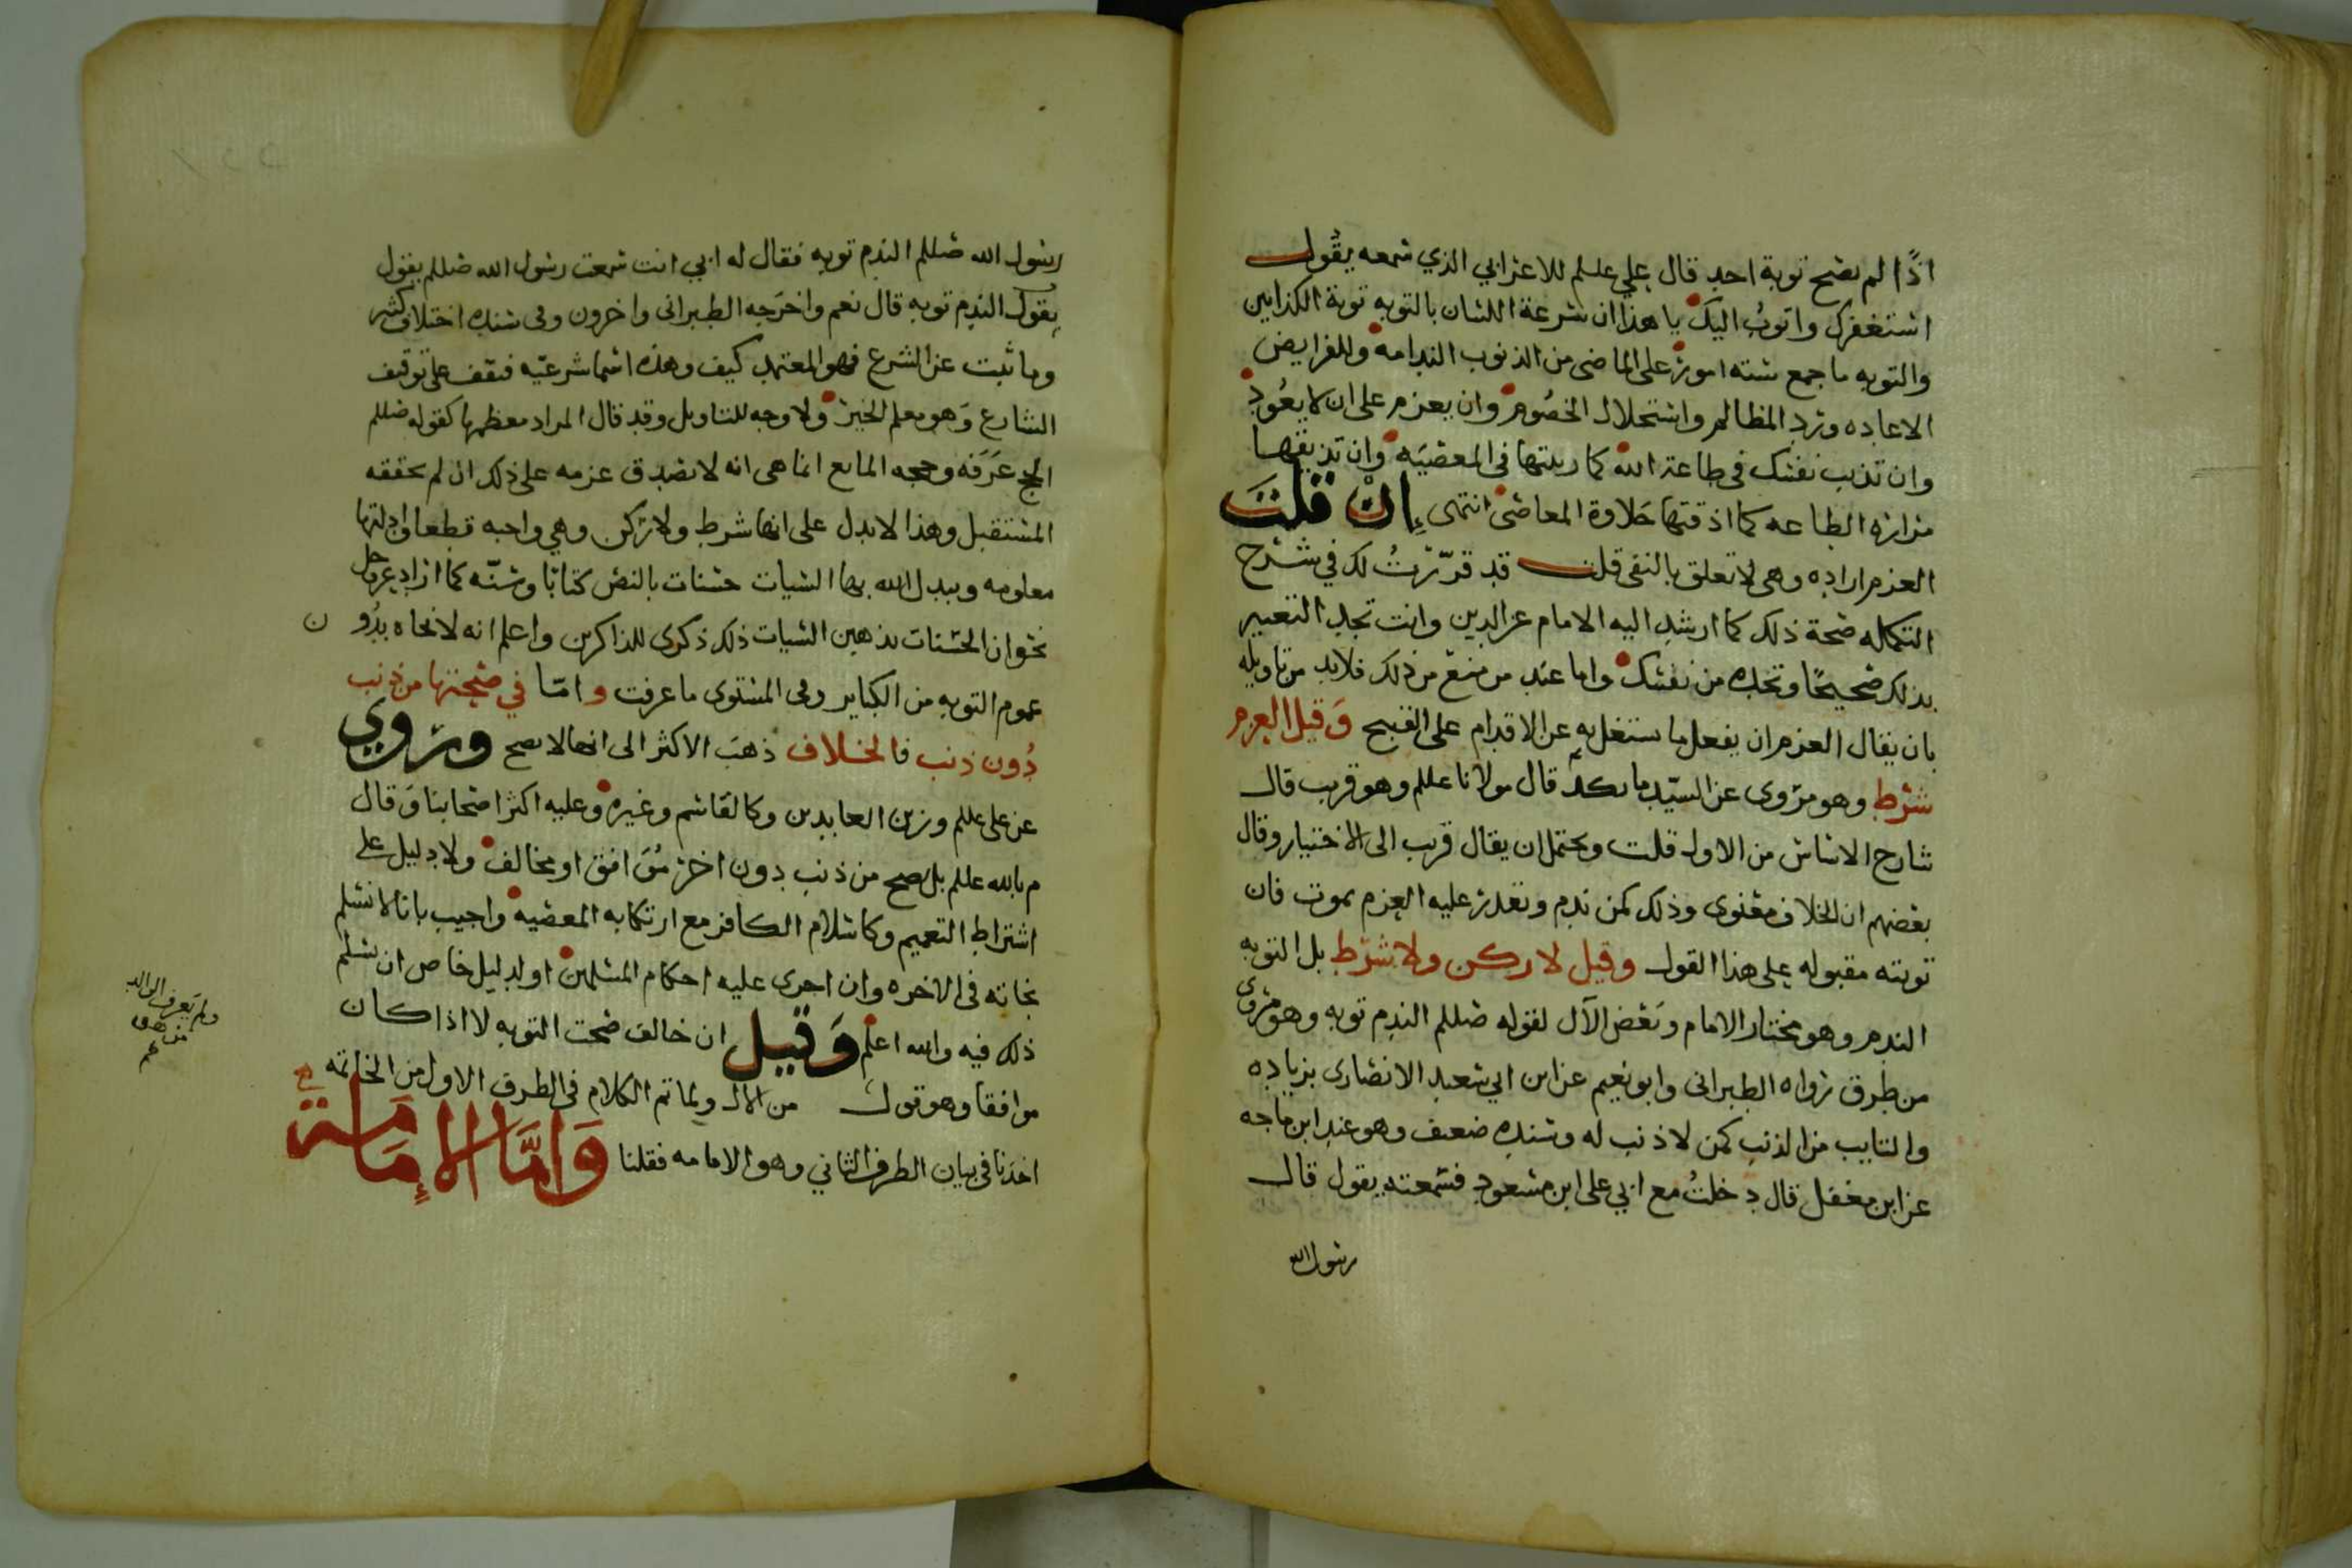 اذًا لم تصح توبة احد قال علي علسلم للاعرابي الذي سمعه يقول
استغفرك واتوبُ اليك يا هذا ان سرعة اللسان بالتوبه توبة الكذابين
والتوبه ما جمع سته امور على الماضى من الذنوب الندامه وللفرايض
الاعاده ورد المظالم واستحلال الخصُوم وان يعزم على ان لا يعُود
وان تذيب نفسك فى طاعة الله كما ربيتها فى المعصيَه وان تذيقها
مرارة الطاعه كما اذقتها حَلاوة المعاصى انتهى إن قلتَ
العزم اراده وهى لا تعلق بالنفى قلت قد قرّرتُ لك في شرح
التكمله صحة ذلك كما ارشد اليه الامام عز الدين وانت تجد التعبير
بذلك صحيحًا وتجده من نفسك واما عند من منع من ذلك فلابد من تاويله
بان يقال العزم ان يفعل ما يشتغل به عن الاقدام على القبيح وَقيل العزم
شرط وهو مروى عن السيّد مانكديم قال مولانا عللم وهو قريب قال
شارح الاساس من الاول قلت ويحتمل ان يقال قريب الى الاختيار وقال
بعضهم ان الخلاف معنوى وذلك كمن ندم وتعذر عليه العزم بموت فان
توبته مقبوله على هذا القول وقيل لا ركن ولا شرط بل التوبه
الندم وهو مختار الامام وبَعض الآل لقوله صللم الندم توبه وهو مروى
من طرق رواه الطبرانى وابو نعيم عن ابن ابي سعيد الانصارى بزياده
والتايب من الذنب كمن لا ذنب له وسنده ضعيف وهو عند ابن ماجه
عن ابن مغفل قال دخلتُ مع ابي على ابن مسعود فسمعته يقول قال
رسول الله
رسول الله صللم الندم توبه فقال له ابي انت سمعت رسول الله صللم يقول
يقول الندم توبه قال نعم واخرَجه الطبرانى واخرون وفى سنده اختلاف كثير
وما ثبت عن الشرع فهو المعتمد كيف وهذه اسما شرعيّه فتقف على توقيف
الشارع وَهو معلم الخير ولا وجه للتاويل وقد قال المراد معظمها كقوله صللم
الحج عَرَفه وحجه المانع انما هى انه لا يصدق عزمه على ذلك ان لم يحققه
المستقبل وهذا لا يدل على انها شرط ولا ركن وهي واجبه قطعا وادلتها
معلومه ويبدل الله بها السيات حسنات بالنص كتابًا وسنّه كما اراد عزوجل
نحو ان الحسنات يذهبن السيات ذلك ذكرى للذاكرين واعلم انه لا نجاه بدُون
عموم التوبه من الكباير وفى المستوى ما عرفت واما في صحتها من ذنب
دُون ذنب فالخلاف ذهبَ الاكثر الى انها لا تصح ورُوي
عن على عللم وزين العابدين وكالقاسم وغيره وعليه اكثر اصحابنا وَقال
م بالله عللم بل تصح من ذنب دون اخر مُوَافق او مخالف ولا دليل على
اشتراط التعميم وكاسلام الكافر مع ارتكابه المعصيه واجيب بانا لا نسلم
نجاته فى الاخره وان اجرى عليه احكام المسلمين او لدليل خاص ان سلم
ذلك فيه والله اعلم وَقيل ان خالف صحت التوبه لا اذا كان
موافقا وهو قول من الال ولما تم الكلام فى الطرف الاول من الخاتمه
اخذنا فى بيان الطرف الثاني وهو الامامه فقلنا وَامَّا الإمَامَة